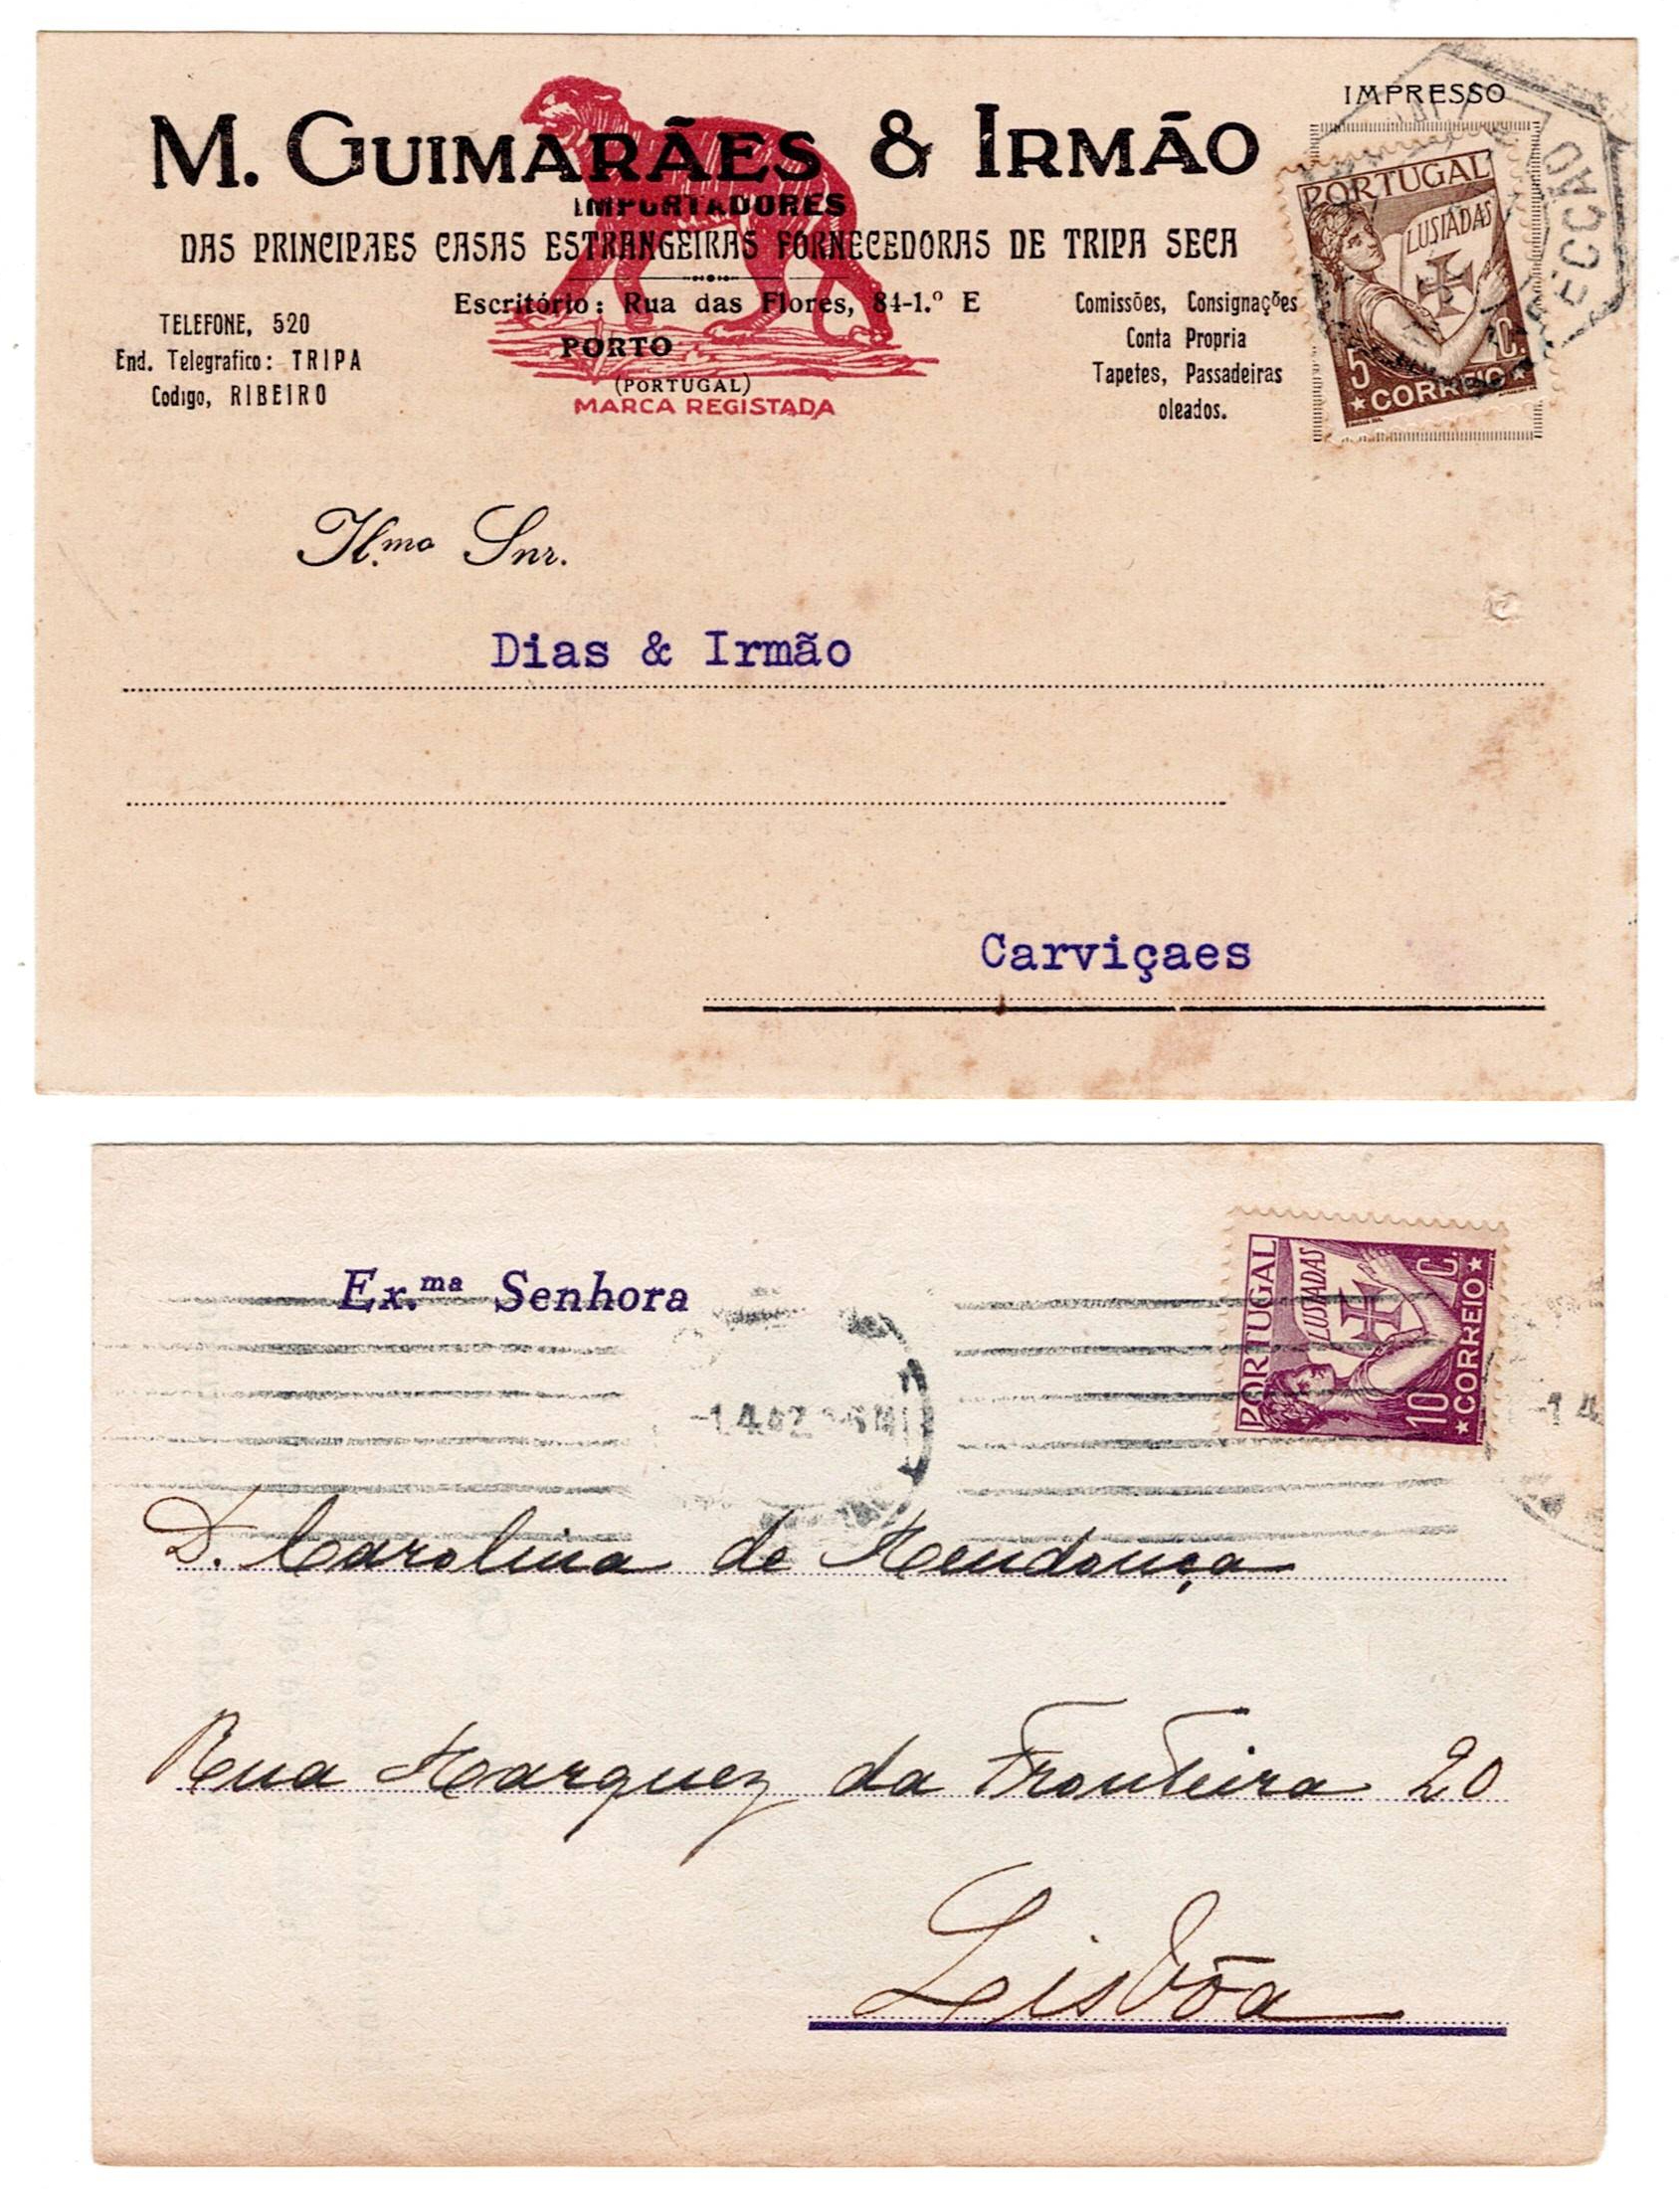 IMPRESSO
M. GUIMARÃES & IRMÃO
IMPORTADORES
DAS PRINCIPAES CASAS ESTRANGEIRAS FORNECEDORAS DE TRIPA SECA
Escritório: Rua das Flores, 84-1.º E
PORTO
(PORTUGAL)
MARCA REGISTADA
TELEFONE, 520
End. Telegrafico: TRIPA
Codigo, RIBEIRO
Comissões, Consignações
Conta Propria
Tapetes, Passadeiras
oleados.
PORTUGAL
LUSIADAS
5 C.
CORREIO
ECCÃO
Il.mo Snr.
Dias & Irmão
Carviçaes
Ex.ma Senhora
PORTUGAL
LUSIADAS
10 C.
CORREIO
D. Carolina de Mendonça
Rua Marquez da Fronteira 20
Lisbôa